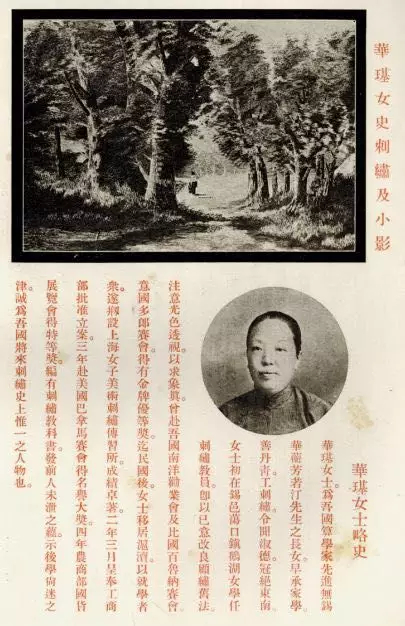 華璂女史刺繡及小影
華璂女士略史
華璂女士。爲吾國算學家先進無錫
華蘅芳若汀先生之長女。早承家學。
善丹青。工刺繡。令聞淑德。冠絕東南。
女士初在錫邑蕩口鎮鵝湖女學任
刺繡教員。卽以已意改良顧繡舊法。
注意光色透視。以求象眞。曾赴吾國南洋勸業會及比國百魯納賽會。
意國多郎賽會。得有金牌優等奬。迄民國後。女士移居滬瀆。以就學者
衆。遂剏設上海女子美術刺繡傳習所。成績卓著。二年三月呈奉工商
部批准立案。三年赴美國巴拿馬賽會。得名譽大奬。四年農商部國貨
展覽會得特等奬。編有刺繡敎科書。發前人未洩之蘊。示後學尙迷之
津。誠爲吾國將來刺繡史上惟一之人物也。